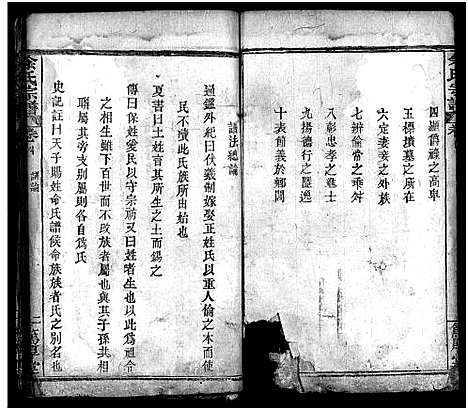 四顯爵祿之高卑
五標墳墓之所在
六定妻妾之外族
七辨倫常之乖舛
八彰忠孝之進士
九揚德行之隱逸
十表節義於鄉閭
譜法總論
通鑑外紀曰伏羲制嫁娶正姓氏以重人倫之本而使
民不瀆此氏族所由始也
夏書曰因其所生之土而錫之
傳曰姓保姓受氏以守宗祊又曰姓者生也以此為祖令
之相生雖下百世而不改族者屬也與其子孫共相
聯屬其旁支別屬則各自為氏
史記註曰天子賜姓命氏諸侯命族族者氏之別名也
余氏宗譜
卷首
譜論
余氏宗譜